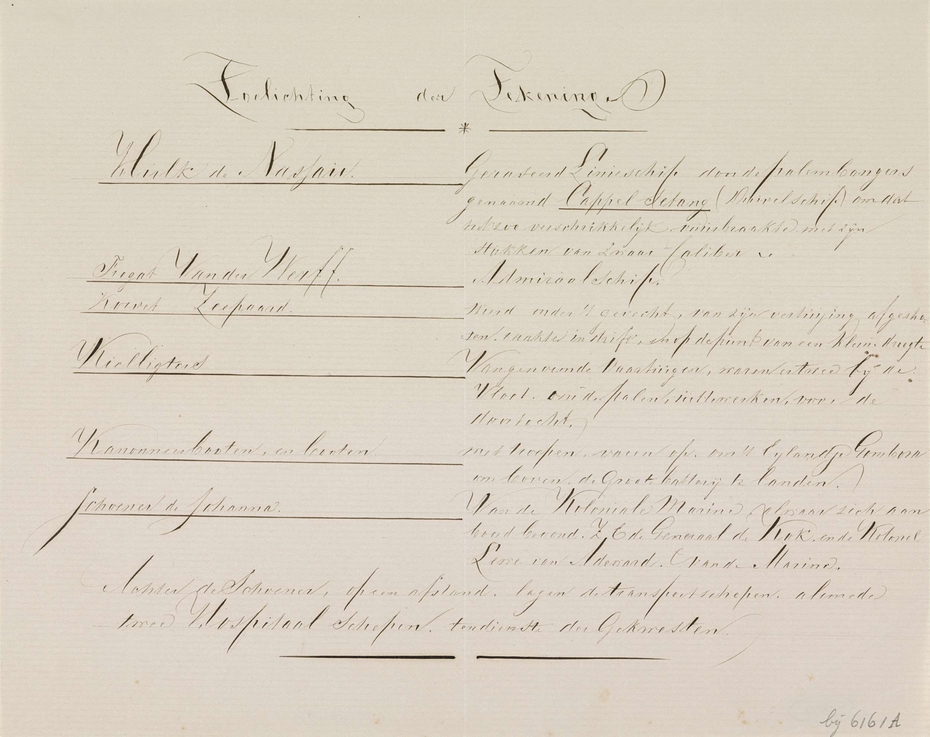 Toelichting der Tekening
Hulk de Nassau. Geraseerd Linieschip door de palembangers
genaamd Cappel-Setang (Duivelschip) om dat
het zoo verschrikkelijk vuurbraakte met zijn
stukken van zwaar Caliber
Fregat Van der Werff. Admiraalschip.
Korvet Zoepaard. Werd onder 't gevecht, van zijn vertuijing afgescho
ten, raakte in drift, op de punt van een klein
Kielligters Vangenoemde Vaartuigen, waren er twee bij de
Vloot. om de palen, uittewerken, voor de
doortocht.
Kanonneerbooten, en booten met troepen waren op om 't Eylandje Gombora
om boven de Groote battery te landen.
Schoener de Johanna. Van de Koloniale Marine, alwaar zich aan
boord bevond. Z. E de Generaal de Kok. en de Kolonel
Lewe van Aduard. (van de Marine.
Achter de Schoener, op een afstand. lagen de transportschepen. alsmede
twee Hospitaal Schepen. ten dienste der Gekwesten.
bij 6161A